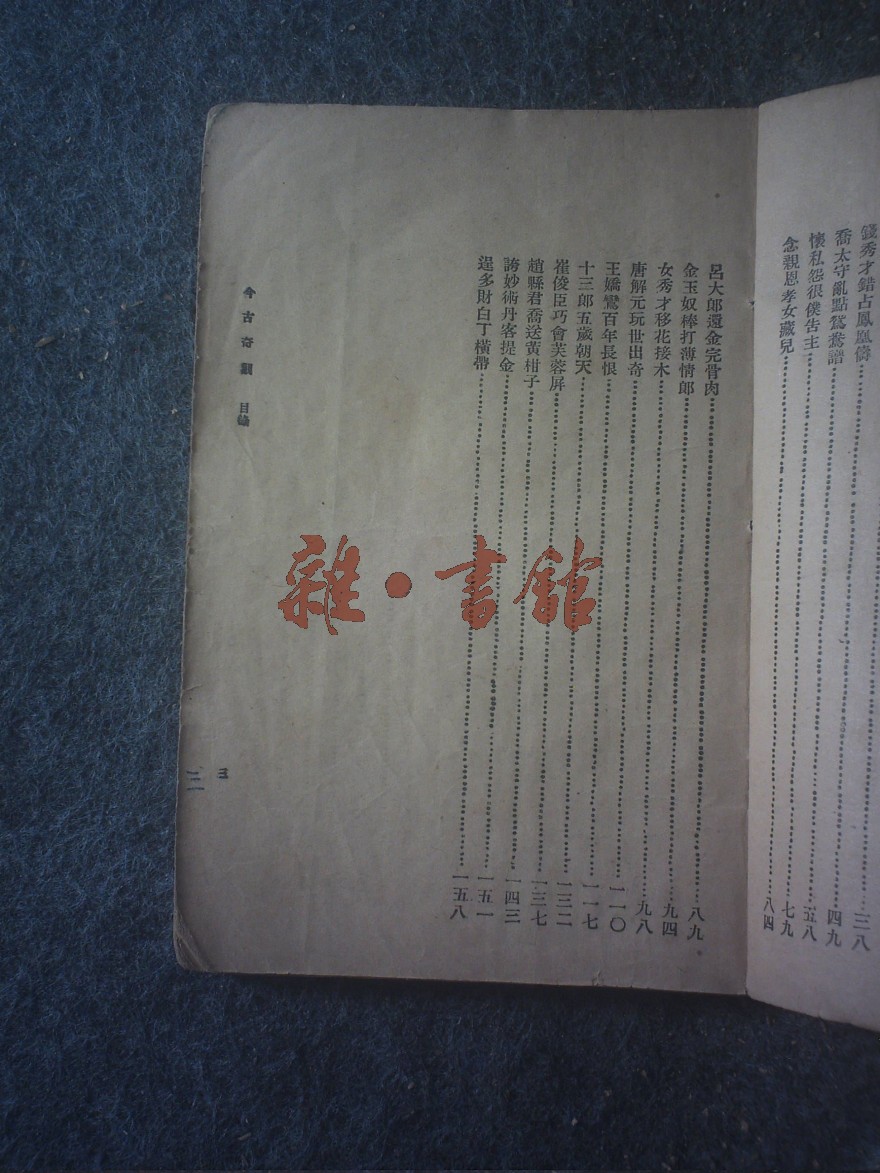 三八
錢秀才錯占鳳凰儔……四九
喬太守亂點鴛鴦譜……五八
懷私怨很僕告主……七九
念親恩孝女藏兒……八四
呂大郎還金完骨肉……八九
金玉奴棒打薄情郎……九四
女秀才移花接木……九八
唐解元玩世出奇……一一〇
王嬌鸞百年長恨……一一七
十三郎五歲朝天……一三二
崔俊臣巧會芙蓉屏……一三七
趙縣君喬送黃柑子……一四三
誇妙術丹客提金……一五一
逞多財白丁橫帶……一五八
今古奇觀 目錄
三
雜·書館